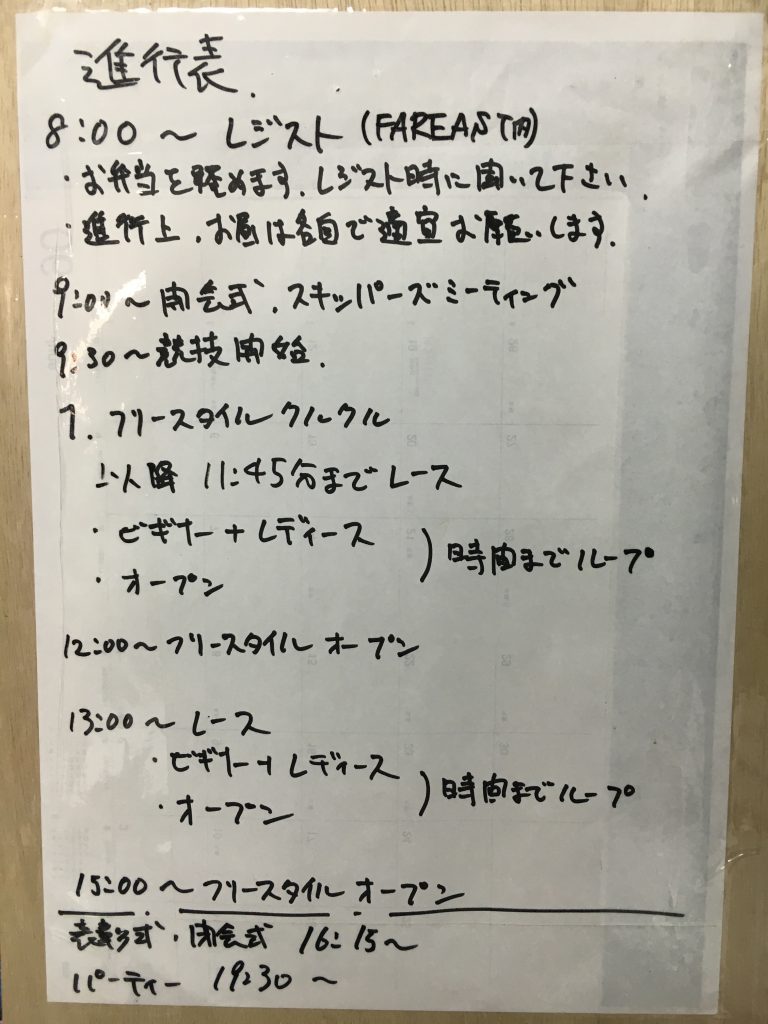 進行表.
8:00 〜 レジスト (FAREAST内)
・お弁当を軽めます. レジスト時に聞いて下さい.
・進行上、お昼は各自で適宜お願いします.
9:00〜 開会式. スキッパーズミーティング
9:30〜 競技開始.
1. フリースタイル クルクル
以降 11:45分までレース
・ビギナー + レディース
・オープン ) 時間までループ
12:00〜 フリースタイル オープン
13:00 〜 レース
・ビギナー + レディース
・オープン ) 時間までループ
15:00 〜 フリースタイル オープン
表彰式・閉会式 16:15〜
パーティー 19:30 〜